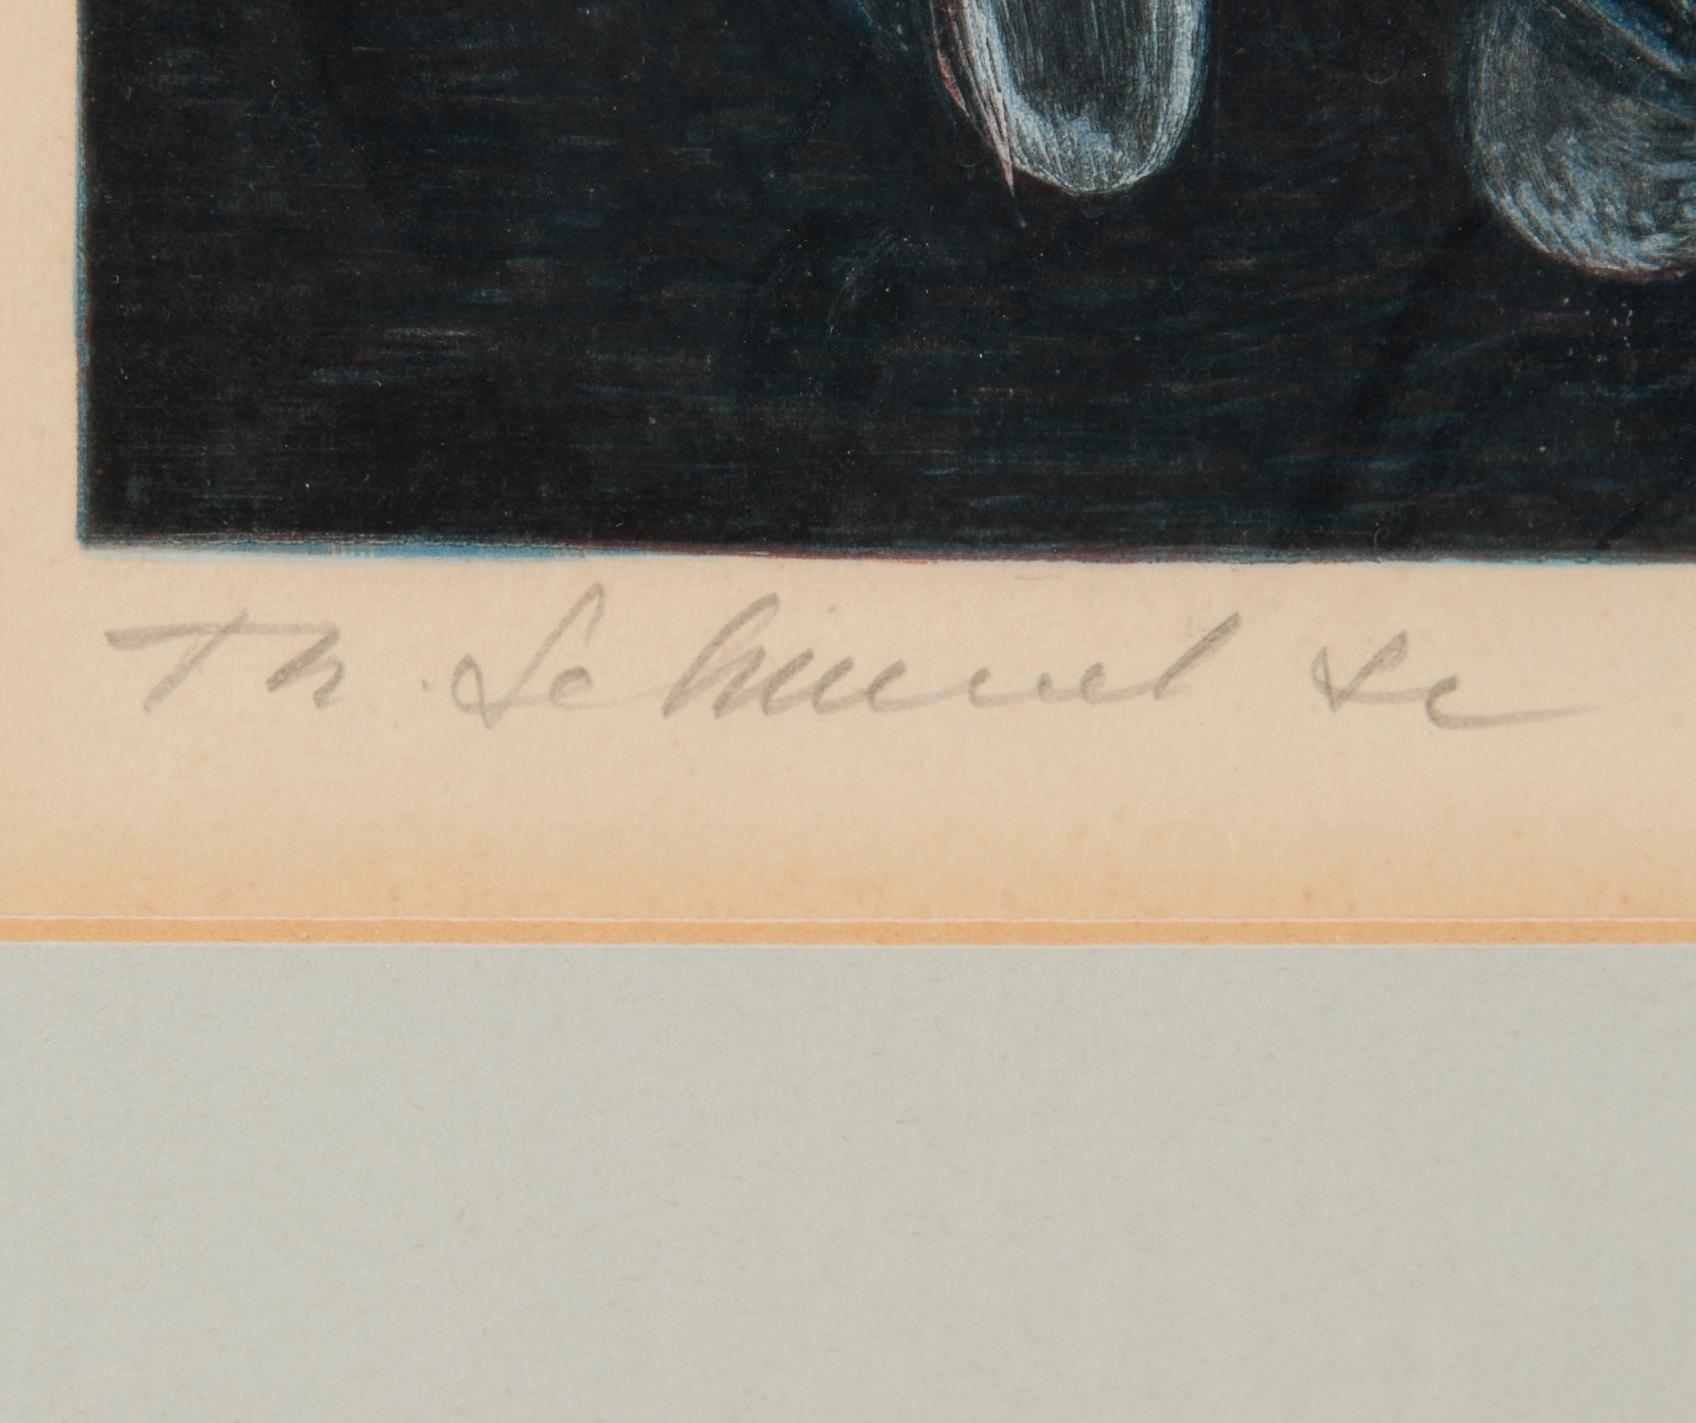 Th. Schmiedl sc